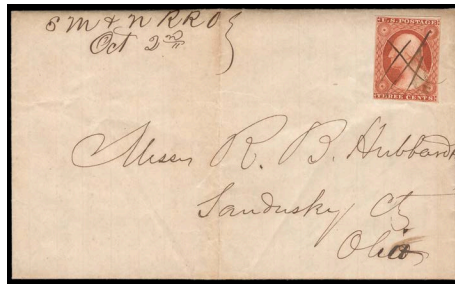 S M & N R R O
Oct 2nd
U.S. POSTAGE
THREE CENTS
Messrs R. B. Hubbard
Sandusky Cty
Ohio